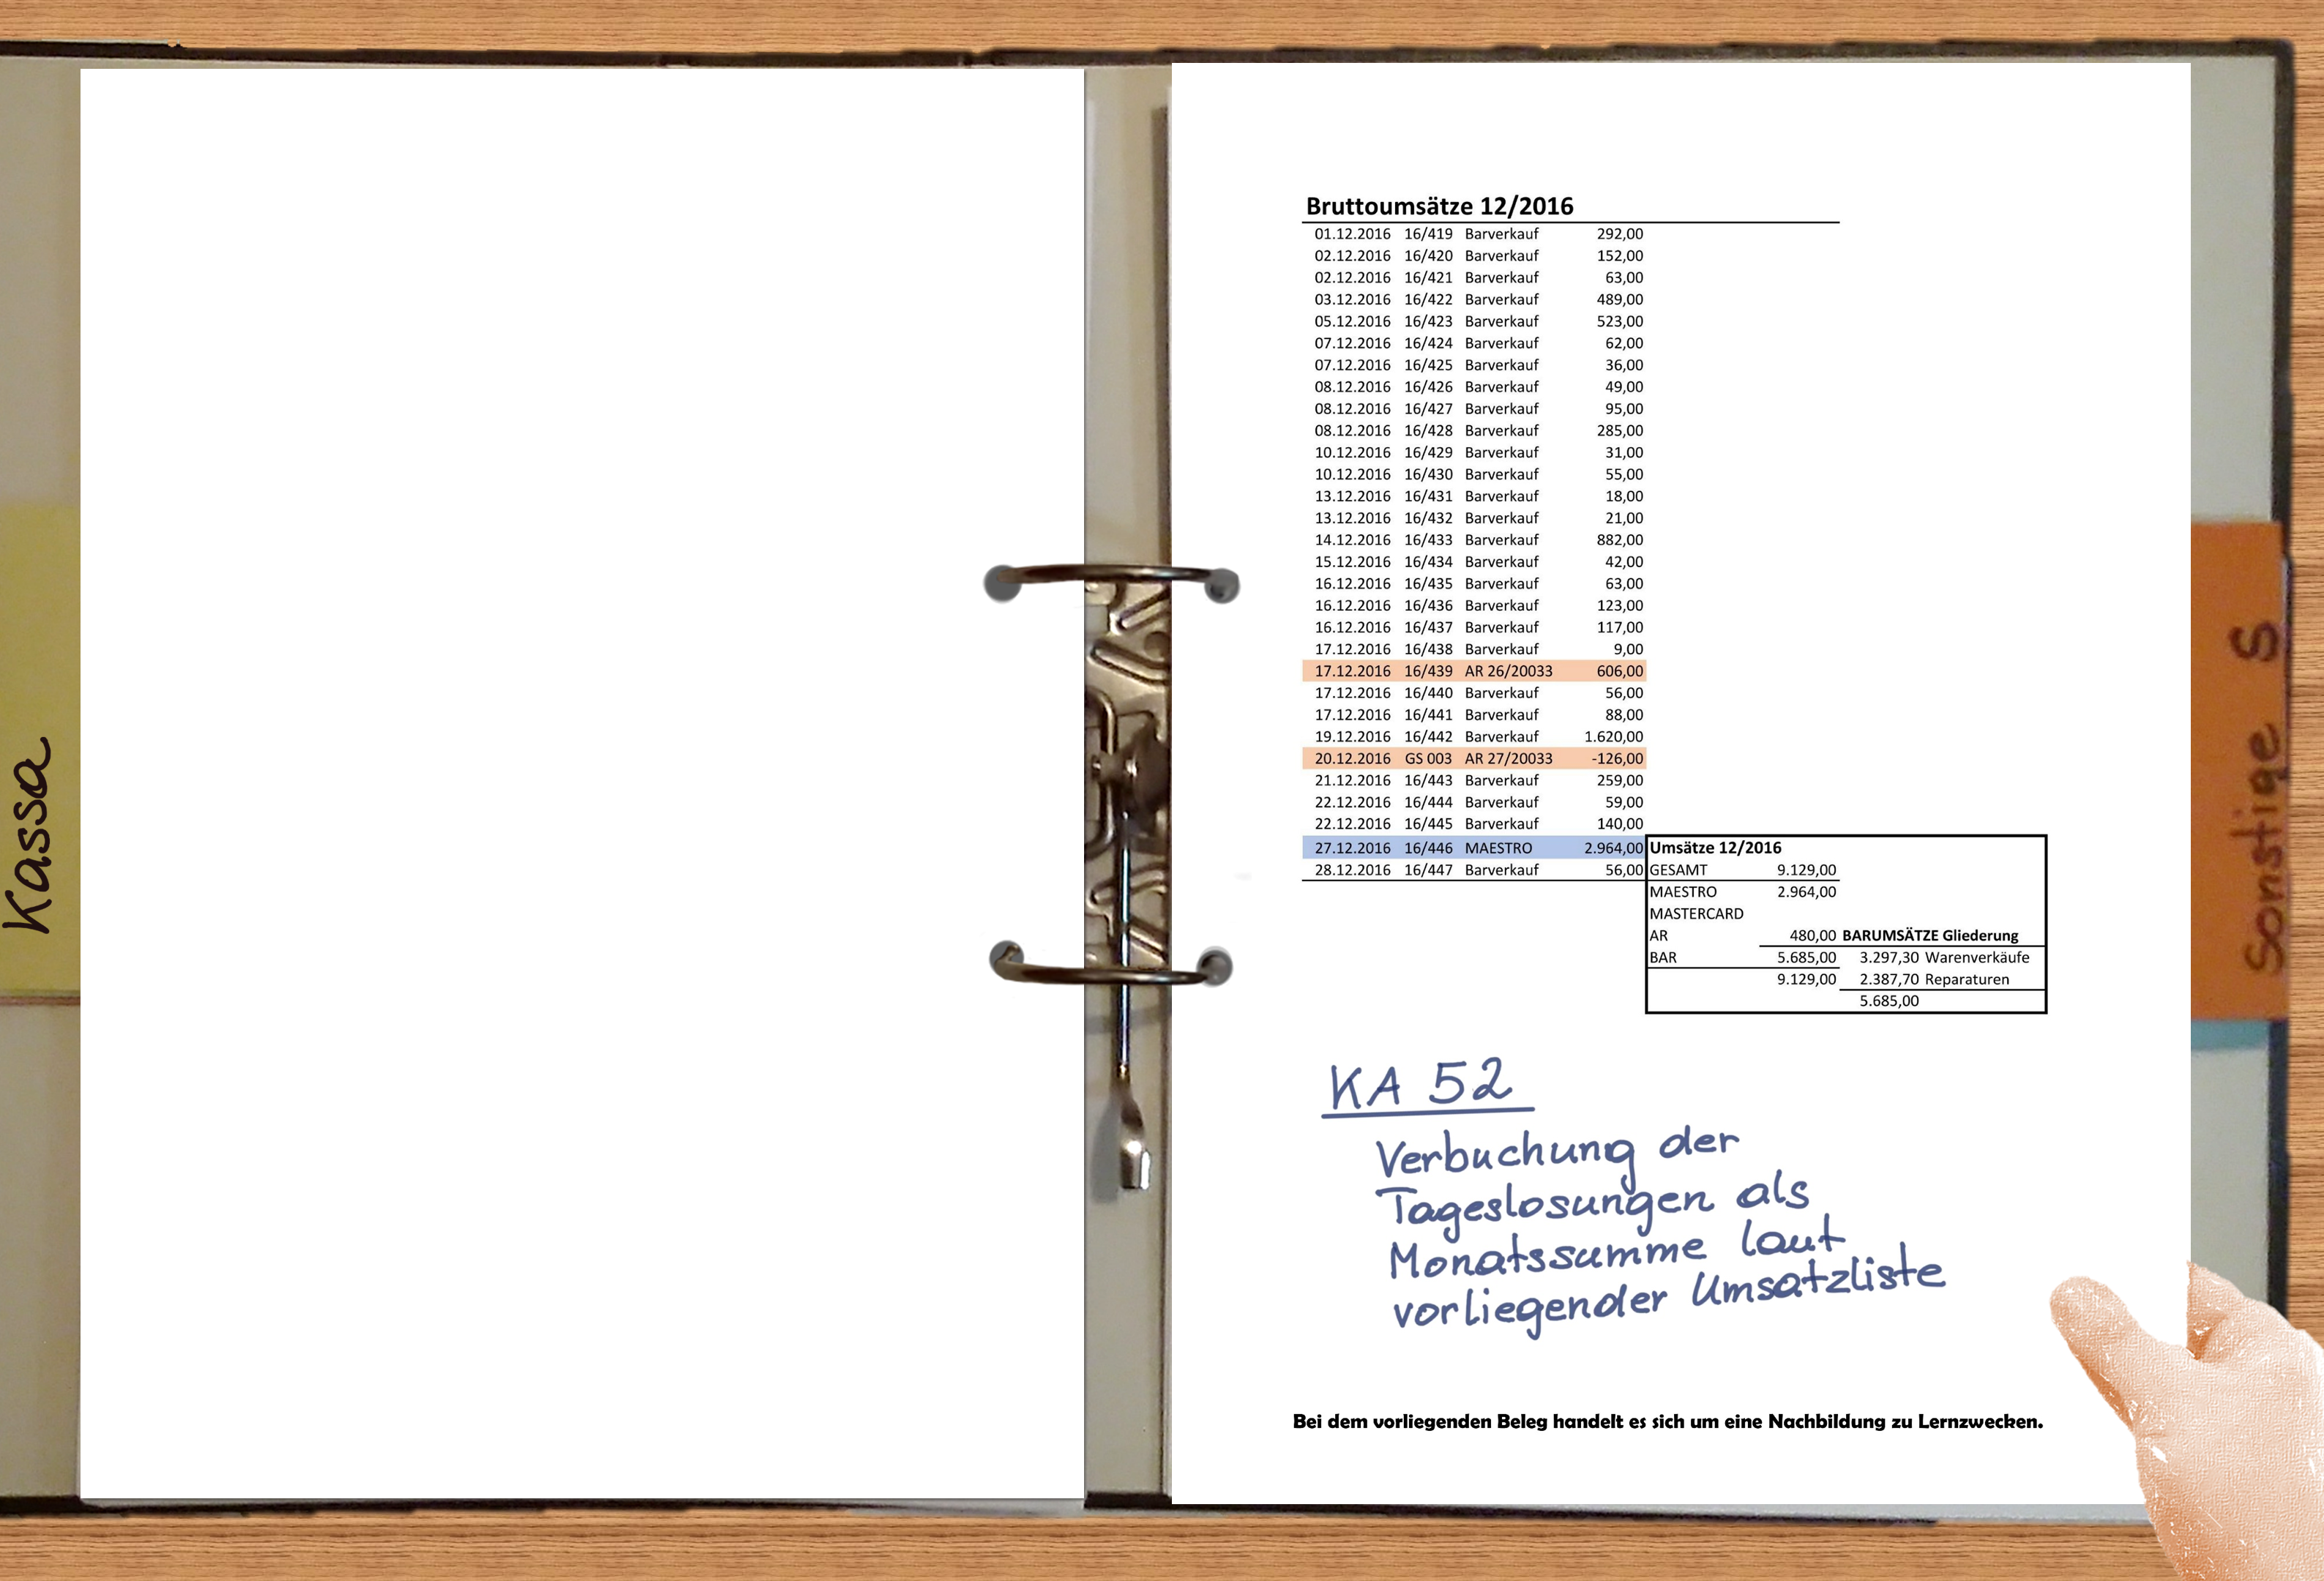 Kassa
Bruttoumsätze 12/2016
01.12.2016 16/419 Barverkauf 292,00
02.12.2016 16/420 Barverkauf 152,00
02.12.2016 16/421 Barverkauf 63,00
03.12.2016 16/422 Barverkauf 489,00
05.12.2016 16/423 Barverkauf 523,00
07.12.2016 16/424 Barverkauf 62,00
07.12.2016 16/425 Barverkauf 36,00
08.12.2016 16/426 Barverkauf 49,00
08.12.2016 16/427 Barverkauf 95,00
08.12.2016 16/428 Barverkauf 285,00
10.12.2016 16/429 Barverkauf 31,00
10.12.2016 16/430 Barverkauf 55,00
13.12.2016 16/431 Barverkauf 18,00
13.12.2016 16/432 Barverkauf 21,00
14.12.2016 16/433 Barverkauf 882,00
15.12.2016 16/434 Barverkauf 42,00
16.12.2016 16/435 Barverkauf 63,00
16.12.2016 16/436 Barverkauf 123,00
16.12.2016 16/437 Barverkauf 117,00
17.12.2016 16/438 Barverkauf 9,00
17.12.2016 16/439 AR 26/20033 606,00
17.12.2016 16/440 Barverkauf 56,00
17.12.2016 16/441 Barverkauf 88,00
19.12.2016 16/442 Barverkauf 1.620,00
20.12.2016 GS 003 AR 27/20033 -126,00
21.12.2016 16/443 Barverkauf 259,00
22.12.2016 16/444 Barverkauf 59,00
22.12.2016 16/445 Barverkauf 140,00
27.12.2016 16/446 MAESTRO 2.964,00 Umsätze 12/2016
28.12.2016 16/447 Barverkauf 56,00 GESAMT 9.129,00
MAESTRO 2.964,00
MASTERCARD
AR 480,00 BARUMSÄTZE Gliederung
BAR 5.685,00 3.297,30 Warenverkäufe
9.129,00 2.387,70 Reparaturen
5.685,00
KA 52
Verbuchung der
Tageslosungen als
Monatssumme laut
vorliegender Umsatzliste
Bei dem vorliegenden Beleg handelt es sich um eine Nachbildung zu Lernzwecken.
Sonstige S